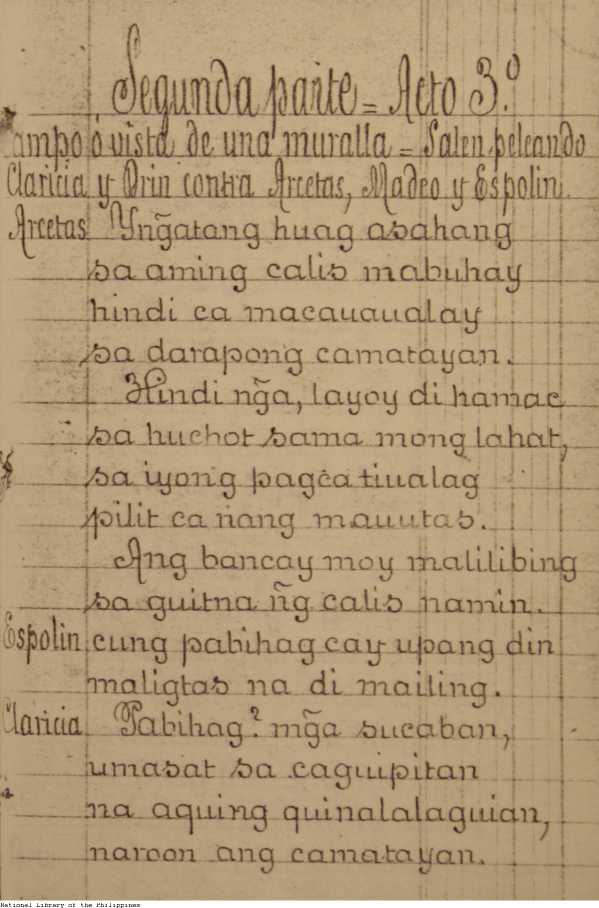 Segunda parte = Acto 3.º
Campo ó vista de una muralla = Salen peleando
Claricia y Orin contra Arcetas, Madeo y Espolin.
Arcetas Yng̃atang huag asahang
sa aming calis mabuhay
hindi ca macauaualay
sa darapong camatayan.
Hindi ng̃a, layoy di hamac
sa huchot sama mong lahat,
sa iyong pagcatiualag
pilit ca nang mauutas.
Ang bancay moy malilibing
sa guitna ñg calis namin.
Espolin cung pabihag cay upang din
maligtas na di mailing.
Claricia Pabihag? mg̃a sucaban,
umasat sa caguipitan
na aquing quinalalaguian,
naroon ang camatayan.
National Library of the Philippines